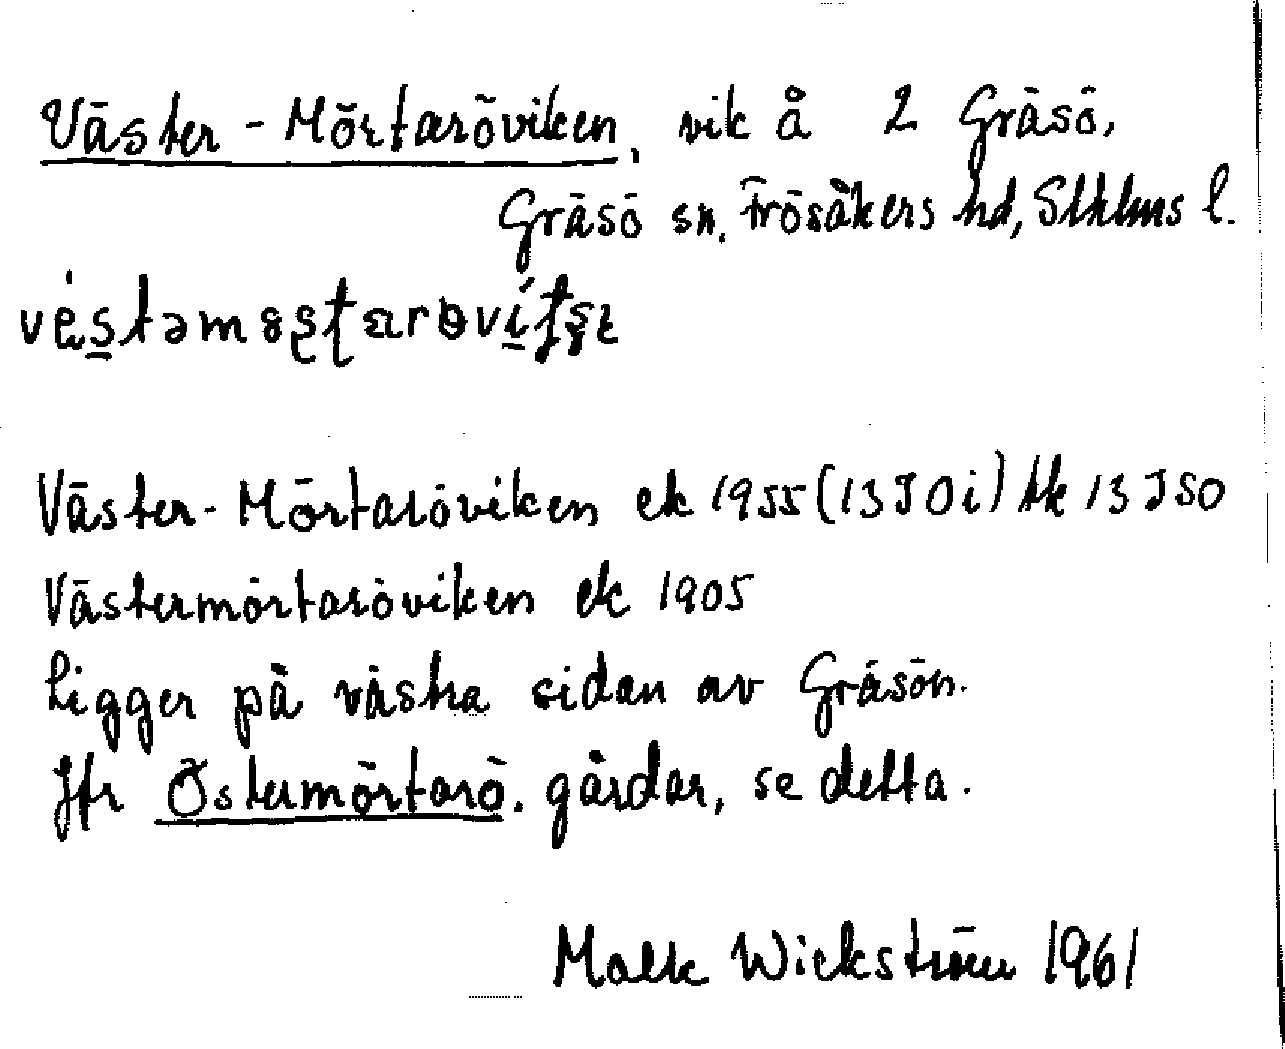 Väster-Mörtaröviken, vik å 2 Gräsö,
Gräsö sn, Frösåkers hd, Sthlms l.
Väster-Mörtaröviken ek 1955 (13 J 0 i) tk 13 J SO
Västermörtaröviken ek 1905
Ligger på västra sidan av Gräsön.
Jfr Östermörtarö. gårdar, se detta.
Wickström 1961